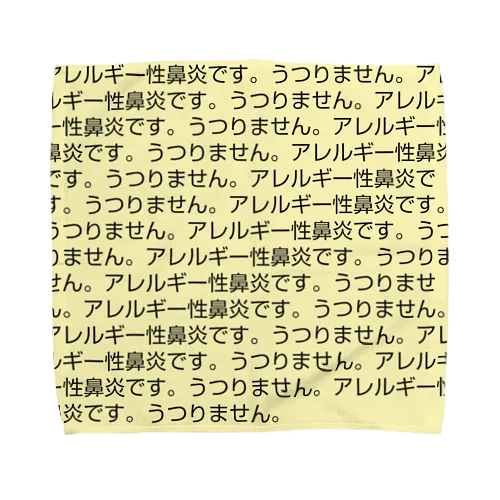 アレルギー性鼻炎です。うつりません。アレ
ルギー性鼻炎です。うつりません。アレルギ
ー性鼻炎です。うつりません。アレルギー性
鼻炎です。うつりません。アレルギー性鼻炎
です。うつりません。アレルギー性鼻炎で
す。うつりません。アレルギー性鼻炎です。
うつりません。アレルギー性鼻炎です。うつ
りません。アレルギー性鼻炎です。うつりま
せん。アレルギー性鼻炎です。うつりませ
ん。アレルギー性鼻炎です。うつりません。
アレルギー性鼻炎です。うつりません。アレ
ルギー性鼻炎です。うつりません。アレルギ
ー性鼻炎です。うつりません。アレルギー性
鼻炎です。うつりません。